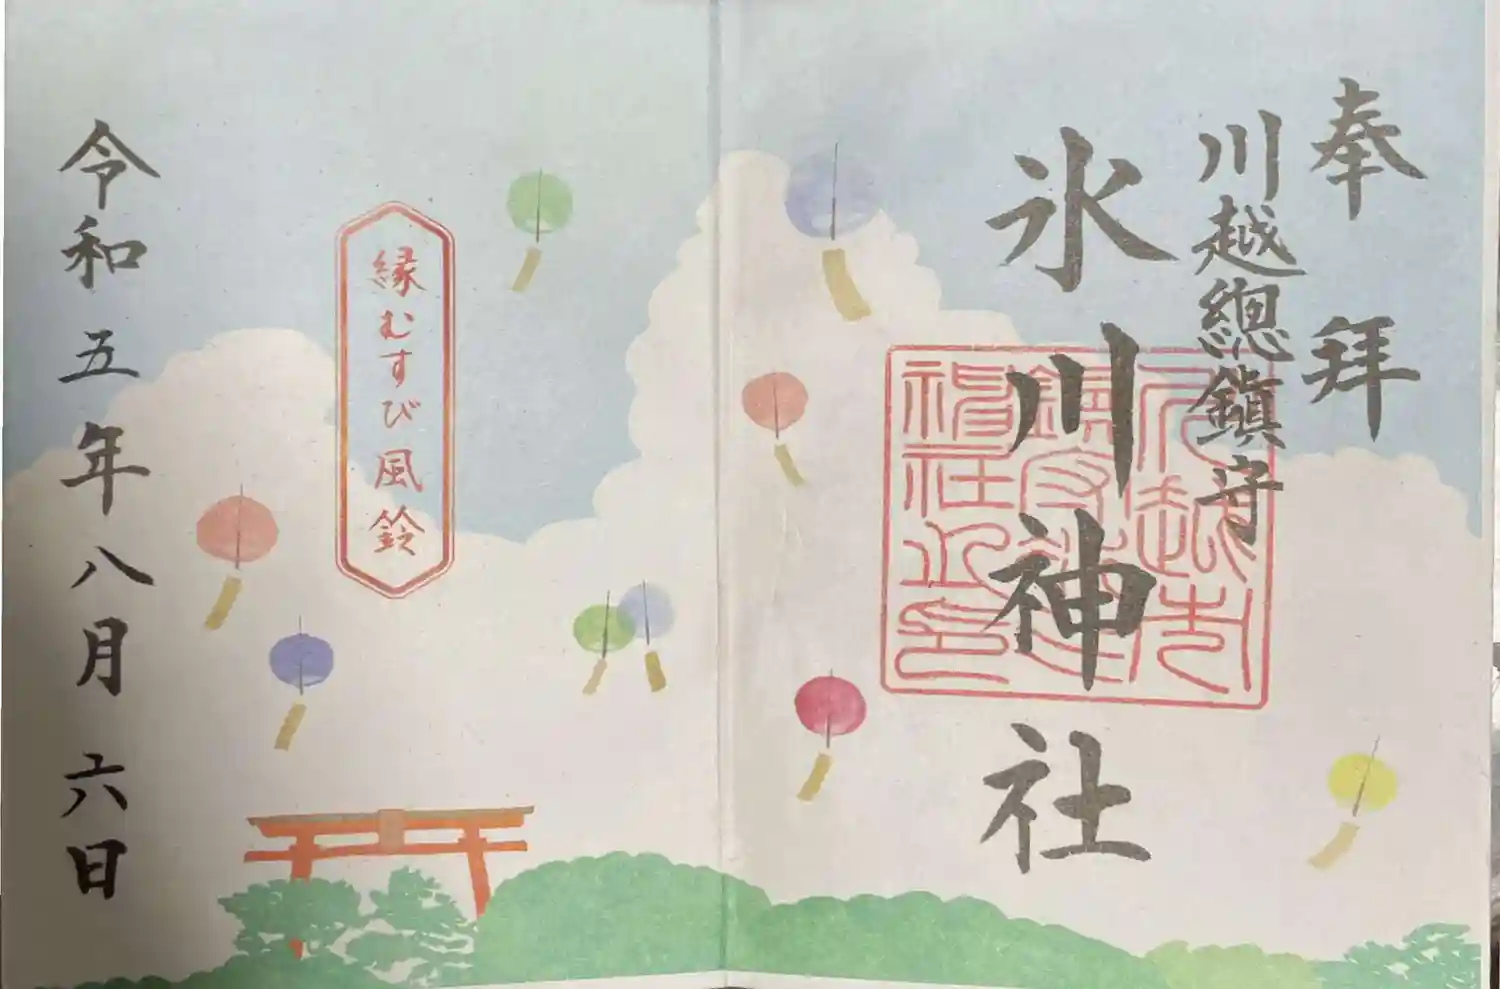 奉拜
川越總鎮守
氷川神社
縁むすび風鈴
令和五年八月六日